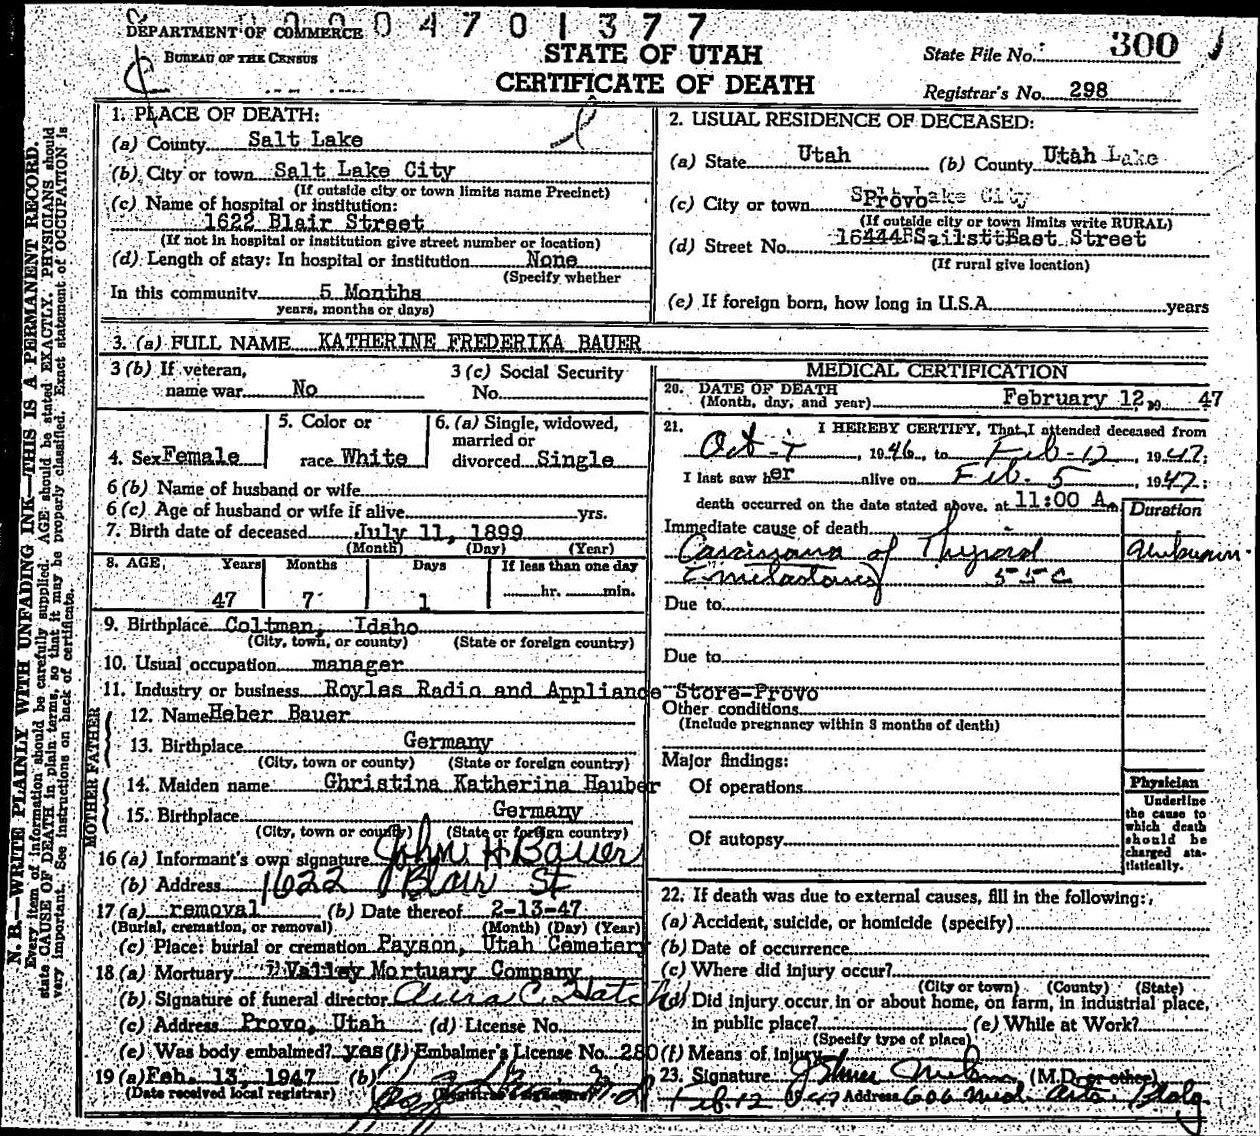 DEPARTMENT OF COMMERCE 0004701377
BUREAU OF THE CENSUS
STATE OF UTAH
CERTIFICATE OF DEATH
State File No. 300
Registrar's No. 298
N. B.—WRITE PLAINLY WITH UNFADING INK—THIS IS A PERMANENT RECORD.
Every item of information should be carefully supplied. AGE should be stated EXACTLY. PHYSICIANS should
state CAUSE OF DEATH in plain terms, so that it may be properly classified. Exact statement of OCCUPATION is
very important. See instructions on back of certificate.
1. PLACE OF DEATH:
(a) County Salt Lake
(b) City or town Salt Lake City
(If outside city or town limits name Precinct)
(c) Name of hospital or institution:
1622 Blair Street
(If not in hospital or institution give street number or location)
(d) Length of stay: In hospital or institution None
(Specify whether
In this community 5 Months
years, months or days)
2. USUAL RESIDENCE OF DECEASED:
(a) State Utah (b) County Utah Lake
(c) City or town Provo Lake City
(If outside city or town limits write RURAL)
(d) Street No. East Street
(If rural give location)
(e) If foreign born, how long in U.S.A. years
3. (a) FULL NAME KATHERINE FREDERIKA BAUER
3 (b) If veteran,
name war No
3 (c) Social Security
No.
4. Sex Female
5. Color or
race White
6. (a) Single, widowed,
married or
divorced Single
6 (b) Name of husband or wife
6 (c) Age of husband or wife if alive yrs.
7. Birth date of deceased July 11, 1899
(Month) (Day) (Year)
8. AGE Years Months Days If less than one day
47 7 1 hr. min.
9. Birthplace Coltman, Idaho
(City, town, or county) (State or foreign country)
10. Usual occupation manager
11. Industry or business Royles Radio and Appliance Store-Provo
FATHER
12. Name Heber Bauer
13. Birthplace Germany
(City, town or county) (State or foreign country)
MOTHER
14. Maiden name Christina Katherina Hauber
15. Birthplace Germany
(City, town or county) (State or foreign country)
16 (a) Informant's own signature John H Bauer
(b) Address 1622 Blair St
17 (a) removal (b) Date thereof 2-13-47
(Burial, cremation, or removal) (Month) (Day) (Year)
(c) Place: burial or cremation Payson, Utah Cemetery
18 (a) Mortuary Valley Mortuary Company
(b) Signature of funeral director C. Hatch
(c) Address Provo, Utah (d) License No.
(e) Was body embalmed? yes (f) Embalmer's License No. 280
19 (a) Feb. 13, 1947 (b)
(Date received local registrar) (Registrar's signature)
MEDICAL CERTIFICATION
20. DATE OF DEATH
(Month, day, and year) February 12, 19 47
21. I HEREBY CERTIFY, That I attended deceased from
Oct - 7, 1946, to Feb - 12, 1947;
I last saw her alive on Feb. 5, 1947;
death occurred on the date stated above, at 11:00 A m.
Duration
Immediate cause of death
Carcinoma of Thyroid Unknown
c metastasis 55C
Due to
Due to
Other conditions
(Include pregnancy within 3 months of death)
Major findings:
Of operations
Of autopsy
Physician
Underline
the cause to
which death
should be
charged sta-
tistically.
22. If death was due to external causes, fill in the following:
(a) Accident, suicide, or homicide (specify)
(b) Date of occurrence
(c) Where did injury occur?
(City or town) (County) (State)
(d) Did injury occur in or about home, on farm, in industrial place,
in public place? (e) While at Work?
(Specify type of place)
(f) Means of injury
23. Signature (M.D. or other)
Feb. 12 1947 Address 606 Med. Arts Bldg